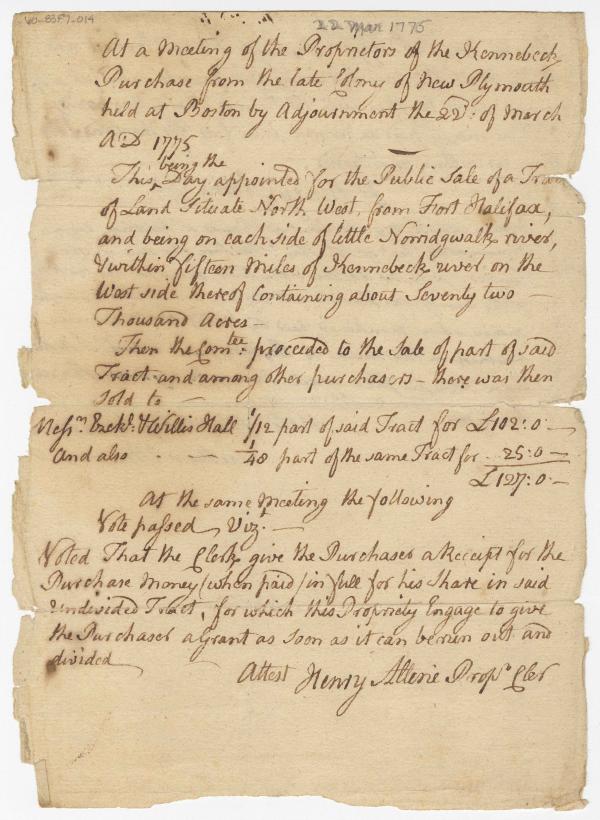 VO-83F7-014
22 Mar 1775
At a Meeting of the Proprietors of the Kennebeck
Purchase from the late Colony of New Plymouth
held at Boston by Adjournment the 22d: of March
A:D 1775
being the
This Day appointed for the Public Sale of a Tract
of Land Situate North West, from Fort Halifax,
and being on each side of little Norridgwalk river,
& within fifteen Miles of Kennebeck river on the
West side thereof Containing about Seventy two —
Thousand Acres —
Then the Comtee: proceeded to the Sale of part of said
Tract and among other purchasers — there was then
Sold to —
Messrs Ezekl: & Willis Hall 1/12 part of said Tract for £102:0 —
And also - — 1/48 part of the same Tract for 25:0 —
£127:0 —
At the same Meeting the following
Vote passed, Vizt. —
Voted That the Clerk give the Purchaser a Receipt for the
Purchase Money (when paid) in full for his Share in said
Undivided Tract, for which this Propriety Engage to give
the Purchaser a Grant as soon as it can be run out and
divided
Attest Henry Alline Propr Cler